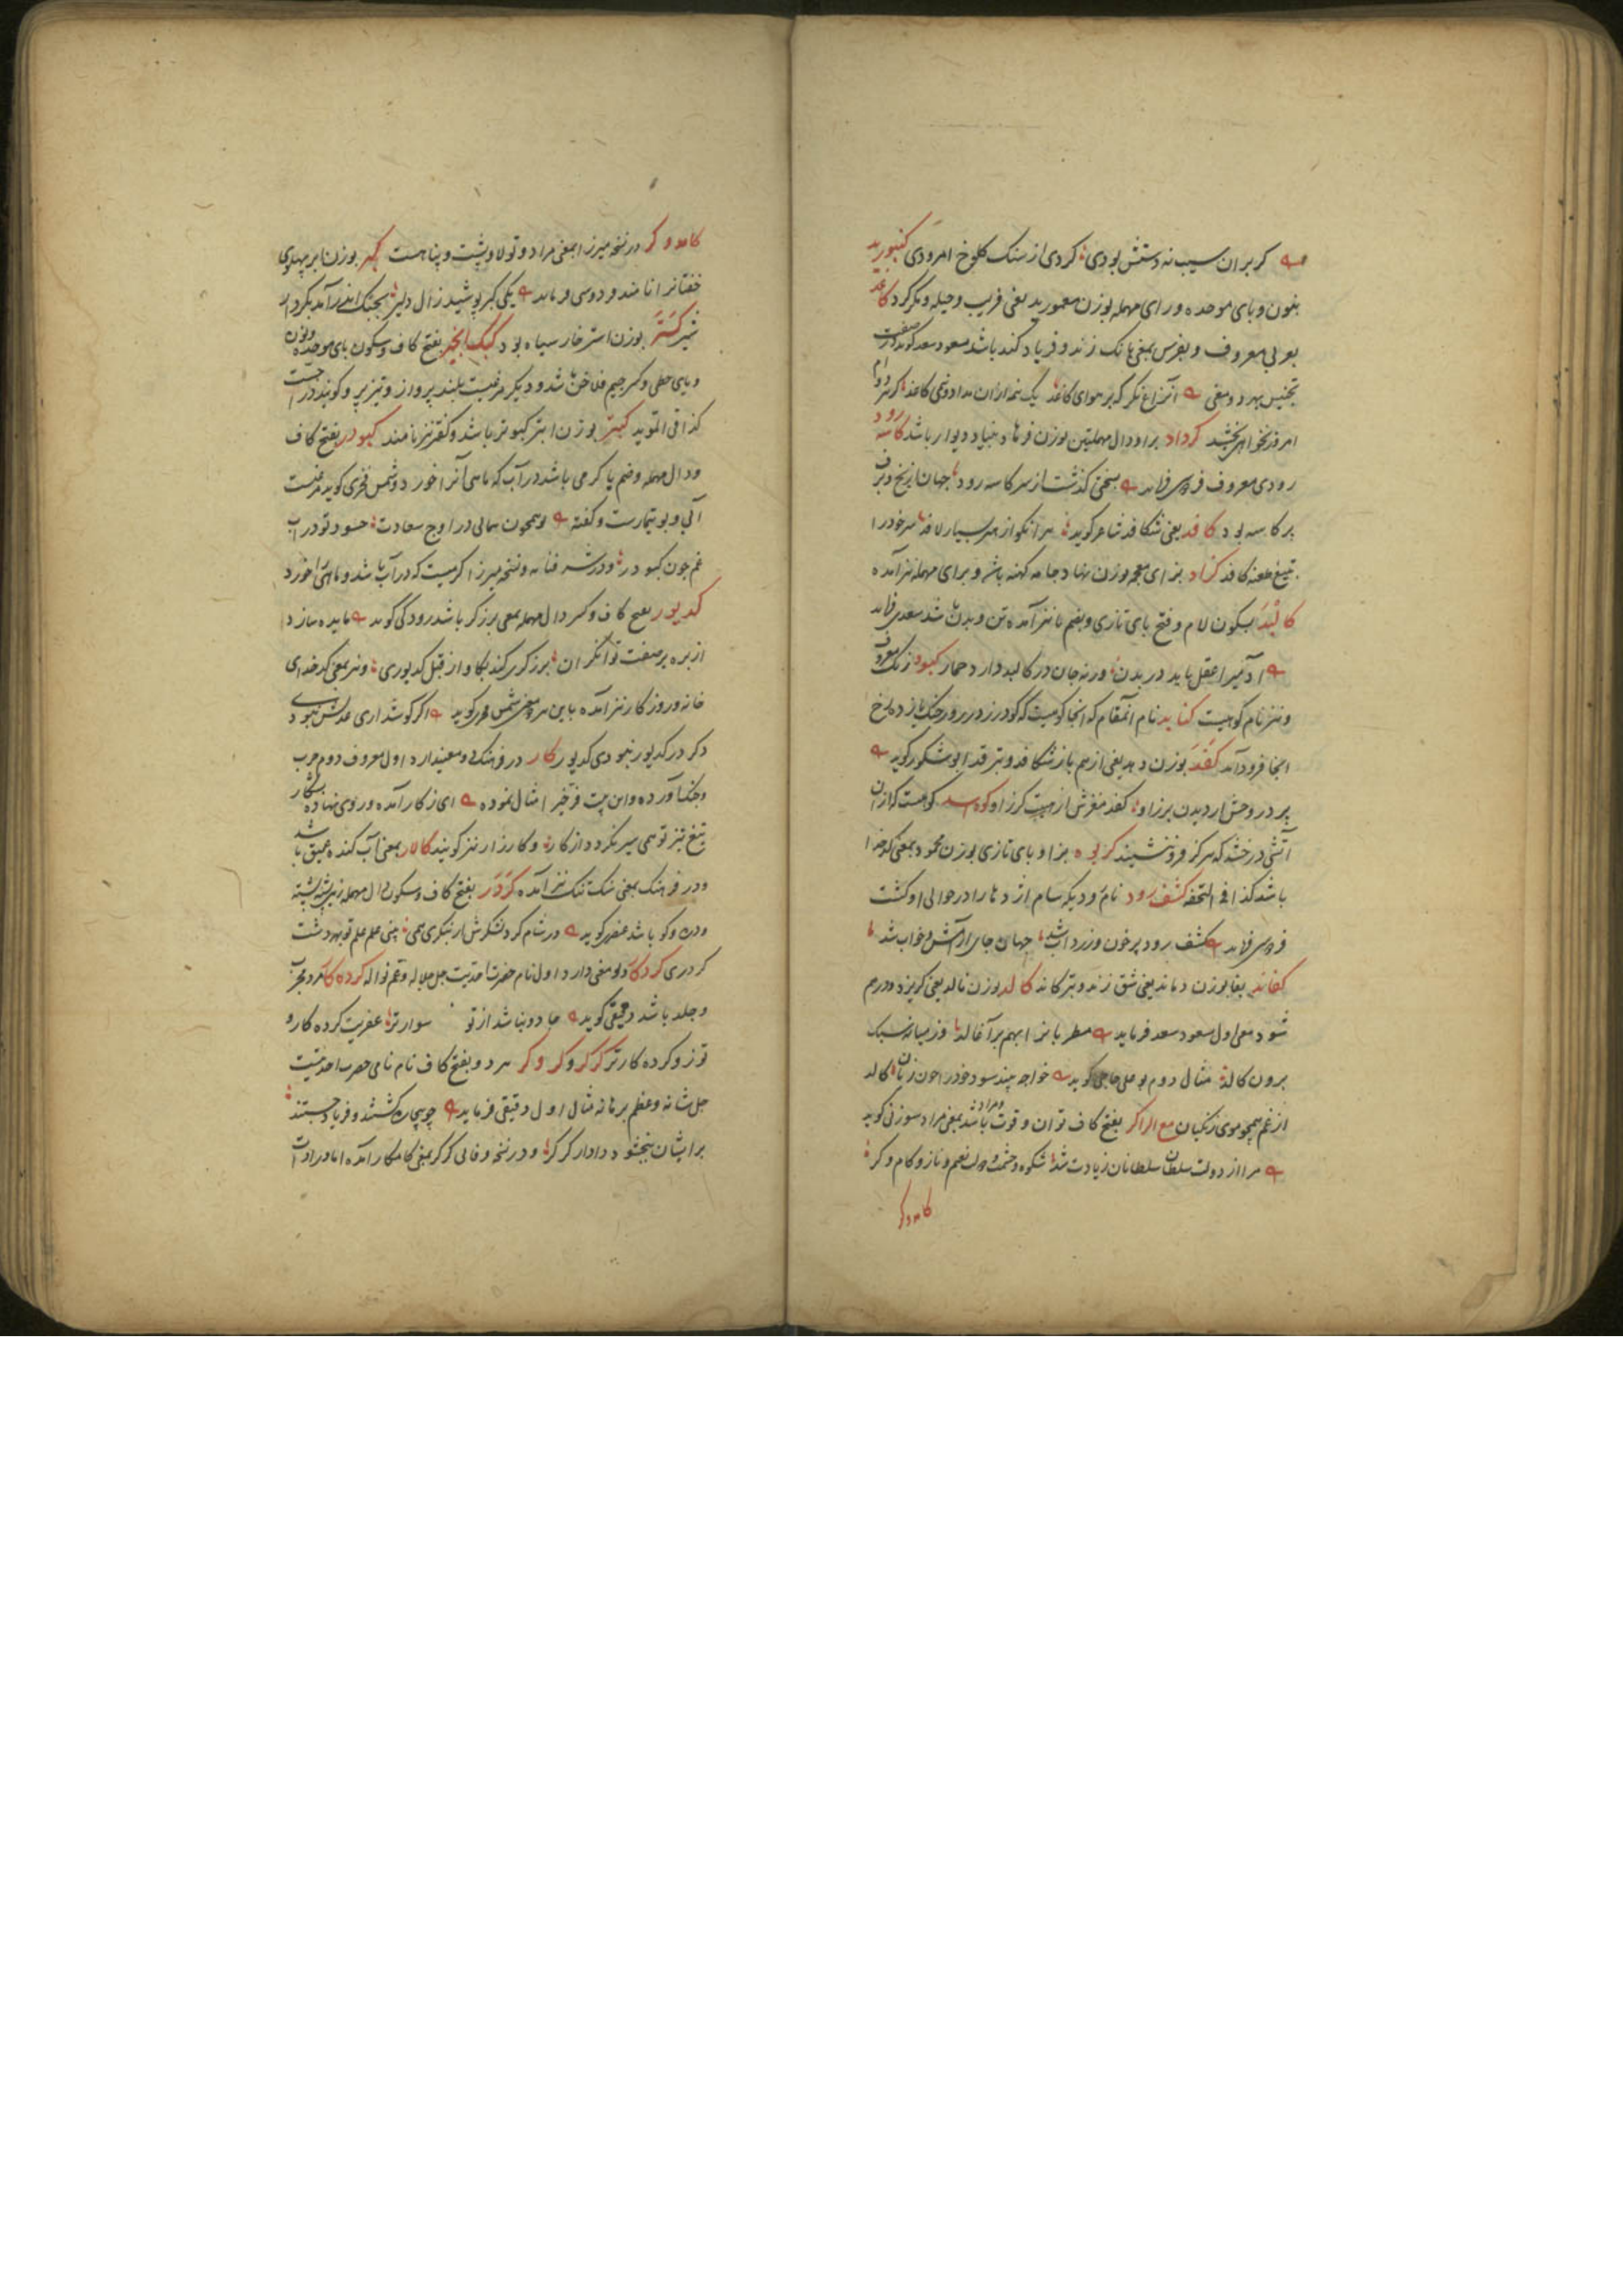 گر بران سیب نه دستش بودی کردی از سنک کلوخ امرودی کنبورید
بنون و بای موحده و رای مهمله بوزن معمورید یعنی فریب و حیله و مکر کرد کاغذ
بعربی معروف و بفرس بمعنی بانک زند و فریاد کند باشد مسعود سعد کوید در صفت
تجنیس بهر دو معنی آن زاغ نکر که بر هوای کاغذ یک نیمه ازان مداد و نیمی کاغذ
امروز نخواهی بخشید کرداد براو دال مهملتین بوزن فرهاد بنیاد دیوار باشد کاسه رود
رودی معروف فردوسی فرماید سخن کذشت از سر کاسه رود جهان از یخ و برف
بر کاسه بود کافد یعنی شکافد شاعر کوید هر انکو از هنر بسیار لافد سر خود را
بتیغ طعنه کافد کزاد بزای معجمه بوزن نهاد جامه کهنه باشد و برای مهمله نیز آمده
کالبد بسکون لام و فتح بای تازی و بضم با نیز آمده تن و بدن باشد سعدی فرماید
آدمیرا عقل باید در بدن ورنه جان در کالبد دارد حمار کبود رنک معروف
و نیز نام کوهیست کنابد نام انمقام که انجا کوهیست که کودرز در روز جنک یازده رخ
انجا فرود آمد کفد بوزن دهد یعنی از هم باز شکافد و بترقد ابو شکور کوید
بر در وحش از دیدن برز او کفد مغزش از هیبت کرز او کوه سد کوهیست که ازان
آتشی درخشد که هرکز فرو ننشیند کزبود بزا و بای تازی بوزن محمود بمعنی کدخدا
باشد کذا فی التحفه کشف رود نام رودیکه سام اژدها را در حوالی او کشت
فردوسی فرماید کشف رود پرخون و زرداب شد جهان جای آرامش و خواب شد
کفاند بفا بوزن دماند یعنی شق زند و بترکاند کالد بوزن نالد یعنی کریزد و درهم
شود معنی اول مسعود سعد فرماید
برون کالد مثال دوم بو علی حاجی کوید خواجه بیند سود خود را چون زیان کالد
از غم همچو موی زنکیان مع الراکر بفتح کاف توان و قوت باشد و مراد بمعنی مراد سوزنی کوید
مرا از دولت سلطان سلطانان زیادت شد شکوه و حشمت و مال و نعیم و ناز و کام و کر
کامدوکر
کامدوکر در نسخه میرزا بمعنی مراد و تولا و پشت و پناهست کبر بوزن ابر بپهلوی
خفتانرا نامند فردوسی فرماید یکی کبر پوشید زال دلیر بجنک اندر آمد بکردار
شیر کستر بوزن استر خار سیاه بود کبک انجیر بفتح کاف و سکون بای موحده و نون
و یای حطی و کسر جیم فلاخن باشد و دیکر مرغیست بلند پرواز و تیز پر و کویند دراجست
کذا فی المؤید کبتر بوزن ابتر کبوتر باشد و کفتر نیز نامند کبودر بفتح کاف
و دال مهمله و ضم با کرمی باشد در آب که ماهی آنرا خورد و شمس فخری کوید مرغیست
آبی و بوتیمارست و کفته او همچون همای در اوج سعادت حسود تو در آب
غم چون کبودر و در نسخه میرزا کرمیست که در آب باشد و ماهی را خورد
کدیور بفتح کاف و کسر دال مهمله بمعنی برزکر باشد رودکی کوید
از بره بر صفت توانکران برزکری کند بکاو از قبل کدیوری و نیز بمعنی کدخدای
خانه و روزکار نیز آمده باین هر دو معنی شمس فخری کوید اکر کوشداری عدلش نبودی
دکر در کدیور نبودی کدیور کار در فرهنک دو معنی دارد اول معروف دوم حرب
و جنک آورده و این بیت فرخی را مثال نموده ای ز کار آمده و روی نهاده بشکار
تیغ تیز تو همی سیر نکردد از کار و کارزار نیز کویند کالار بمعنی آب کنده عمیق باشد
و در فرهنک بمعنی سنک تنک نیز آمده کردر بفتح کاف و سکون دال مهمله زمین پشته پشته
و دره و کو باشد عنصری کوید
کردری کردکار دو معنی دارد اول نام حضرت احدیت جل جلاله و عم نواله کرده کار مرد مجرب
و جلد باشد دقیقی کوید جادو نباشد از تو سوارتر عفریت کرده کار و
تو زو کرده کارتر کرکر و کروکر هر دو بفتح کاف نام نامی حضرت احدیت
جل شانه و عظم برهانه مثال اول دقیقی فرماید چو بیچاره کشتند و فریاد جستند
بر ایشان ببخشود دادار کرکر و در نسخه وفائی کرکر بمعنی کامکار آمده اما در ادات